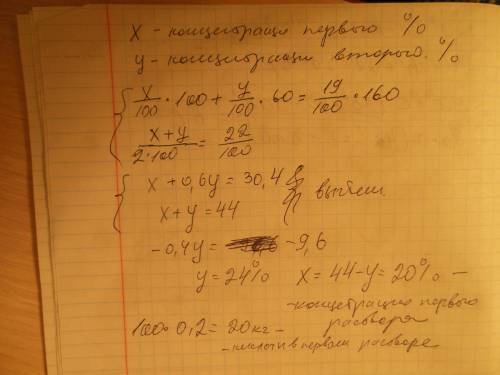 x - концетраци первого %
y - концетрации второго. %
x/100 · 100 + y/100 · 60 = 19/100 · 160
x+y/2·100 = 22/100
x + 0,6y = 30,4
x + y = 44 вычтем.
-0,4y = -9,6
y = 24% x = 44 - y = 20% -
- концетрацию первого
раствора
100 · 0,2 = 20 кг -
- кислоти в первом растворе